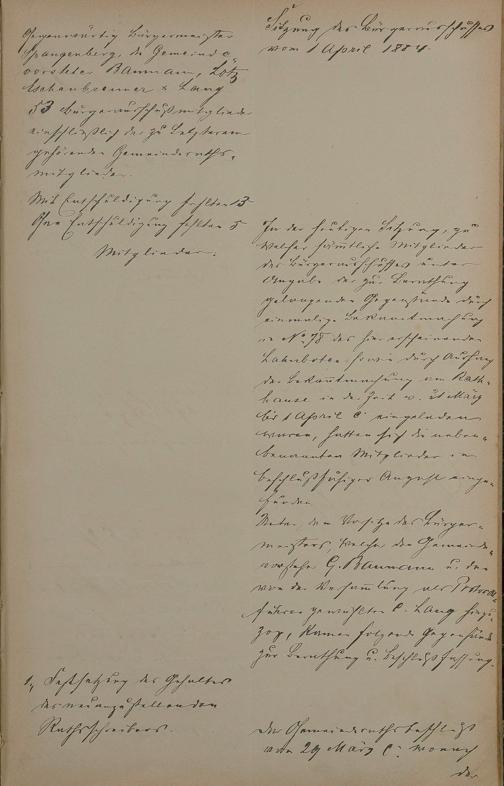 Gegenwärtig Bürgermeister
Spangenberg, die Gemeinde
vorsteher Baumann, Lotz
Eschenbrenner & Lang
53 Bürgerausschußmitglieder
einschließlich der zu Letzterem
gehörenden Gemeinderaths-
mitglieder.
Mit Entschuldigung fehlten 13
Ohne Entschuldigung fehlten 5
Mitglieder.
Sitzung des Bürgerausschusses
vom 1 April 1884.
In der heutigen Sitzung, zu
welcher sämtliche Mitglieder
des Bürgerausschusses unter
Angabe der zur Berathung
gelangenden Gegenstände durch
einmalige Bekanntmachung
in No. 78 des hier erscheinenden
Lahnboten sowie durch Aushang
der Bekanntmachung am Rath-
hause in der Zeit v. 21 März
bis 1 April c. eingeladen
waren, hatten sich die neben-
benannten Mitglieder in
beschlußfähiger Anzahl einge-
funden.
Unter dem Vorsitze des Bürger-
meisters, welcher den Gemeinde-
vorsteher G. Baumann u. den
von der Versammlung als Protocoll-
führer gewählten C. Lang hinzu-
zog, kamen folgende Gegenstände
zur Berathung u. Beschlußfassung.
1, Festsetzung des Gehaltes
des neuanzustellenden
Rathsschreibers.
Der Gemeinderathsbeschluß
vom 29 März c. wonach
der